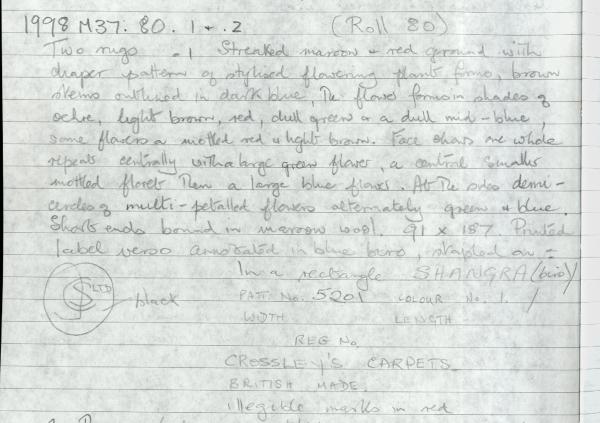 1998 M37. 80. 1 + .2 (Roll 80)
Two rugs .1 Streaked maroon + red ground with
diaper pattern of stylised flowering plant forms, brown
stems outlined in dark blue, The flower forms in shades of
ochre, light brown, red, dull green + a dull mid-blue,
some flowers a mottled red + light brown. Face shows one whole
repeats centrally with a large green flower, a central smaller
mottled floret Then a large blue flower. At The sides demi-
circles of multi-petalled flowers alternately green + blue.
Short ends bound in maroon wool. 91 x 187. Printed
label verso annotated in blue biro, stapled on =
In a rectangle SHANGRA (biro)
LTD black PATT. No. 5201 COLOUR No. 1. /
WIDTH LENGTH
REG No.
CROSSLEY'S CARPETS
BRITISH MADE.
illegible marks in red